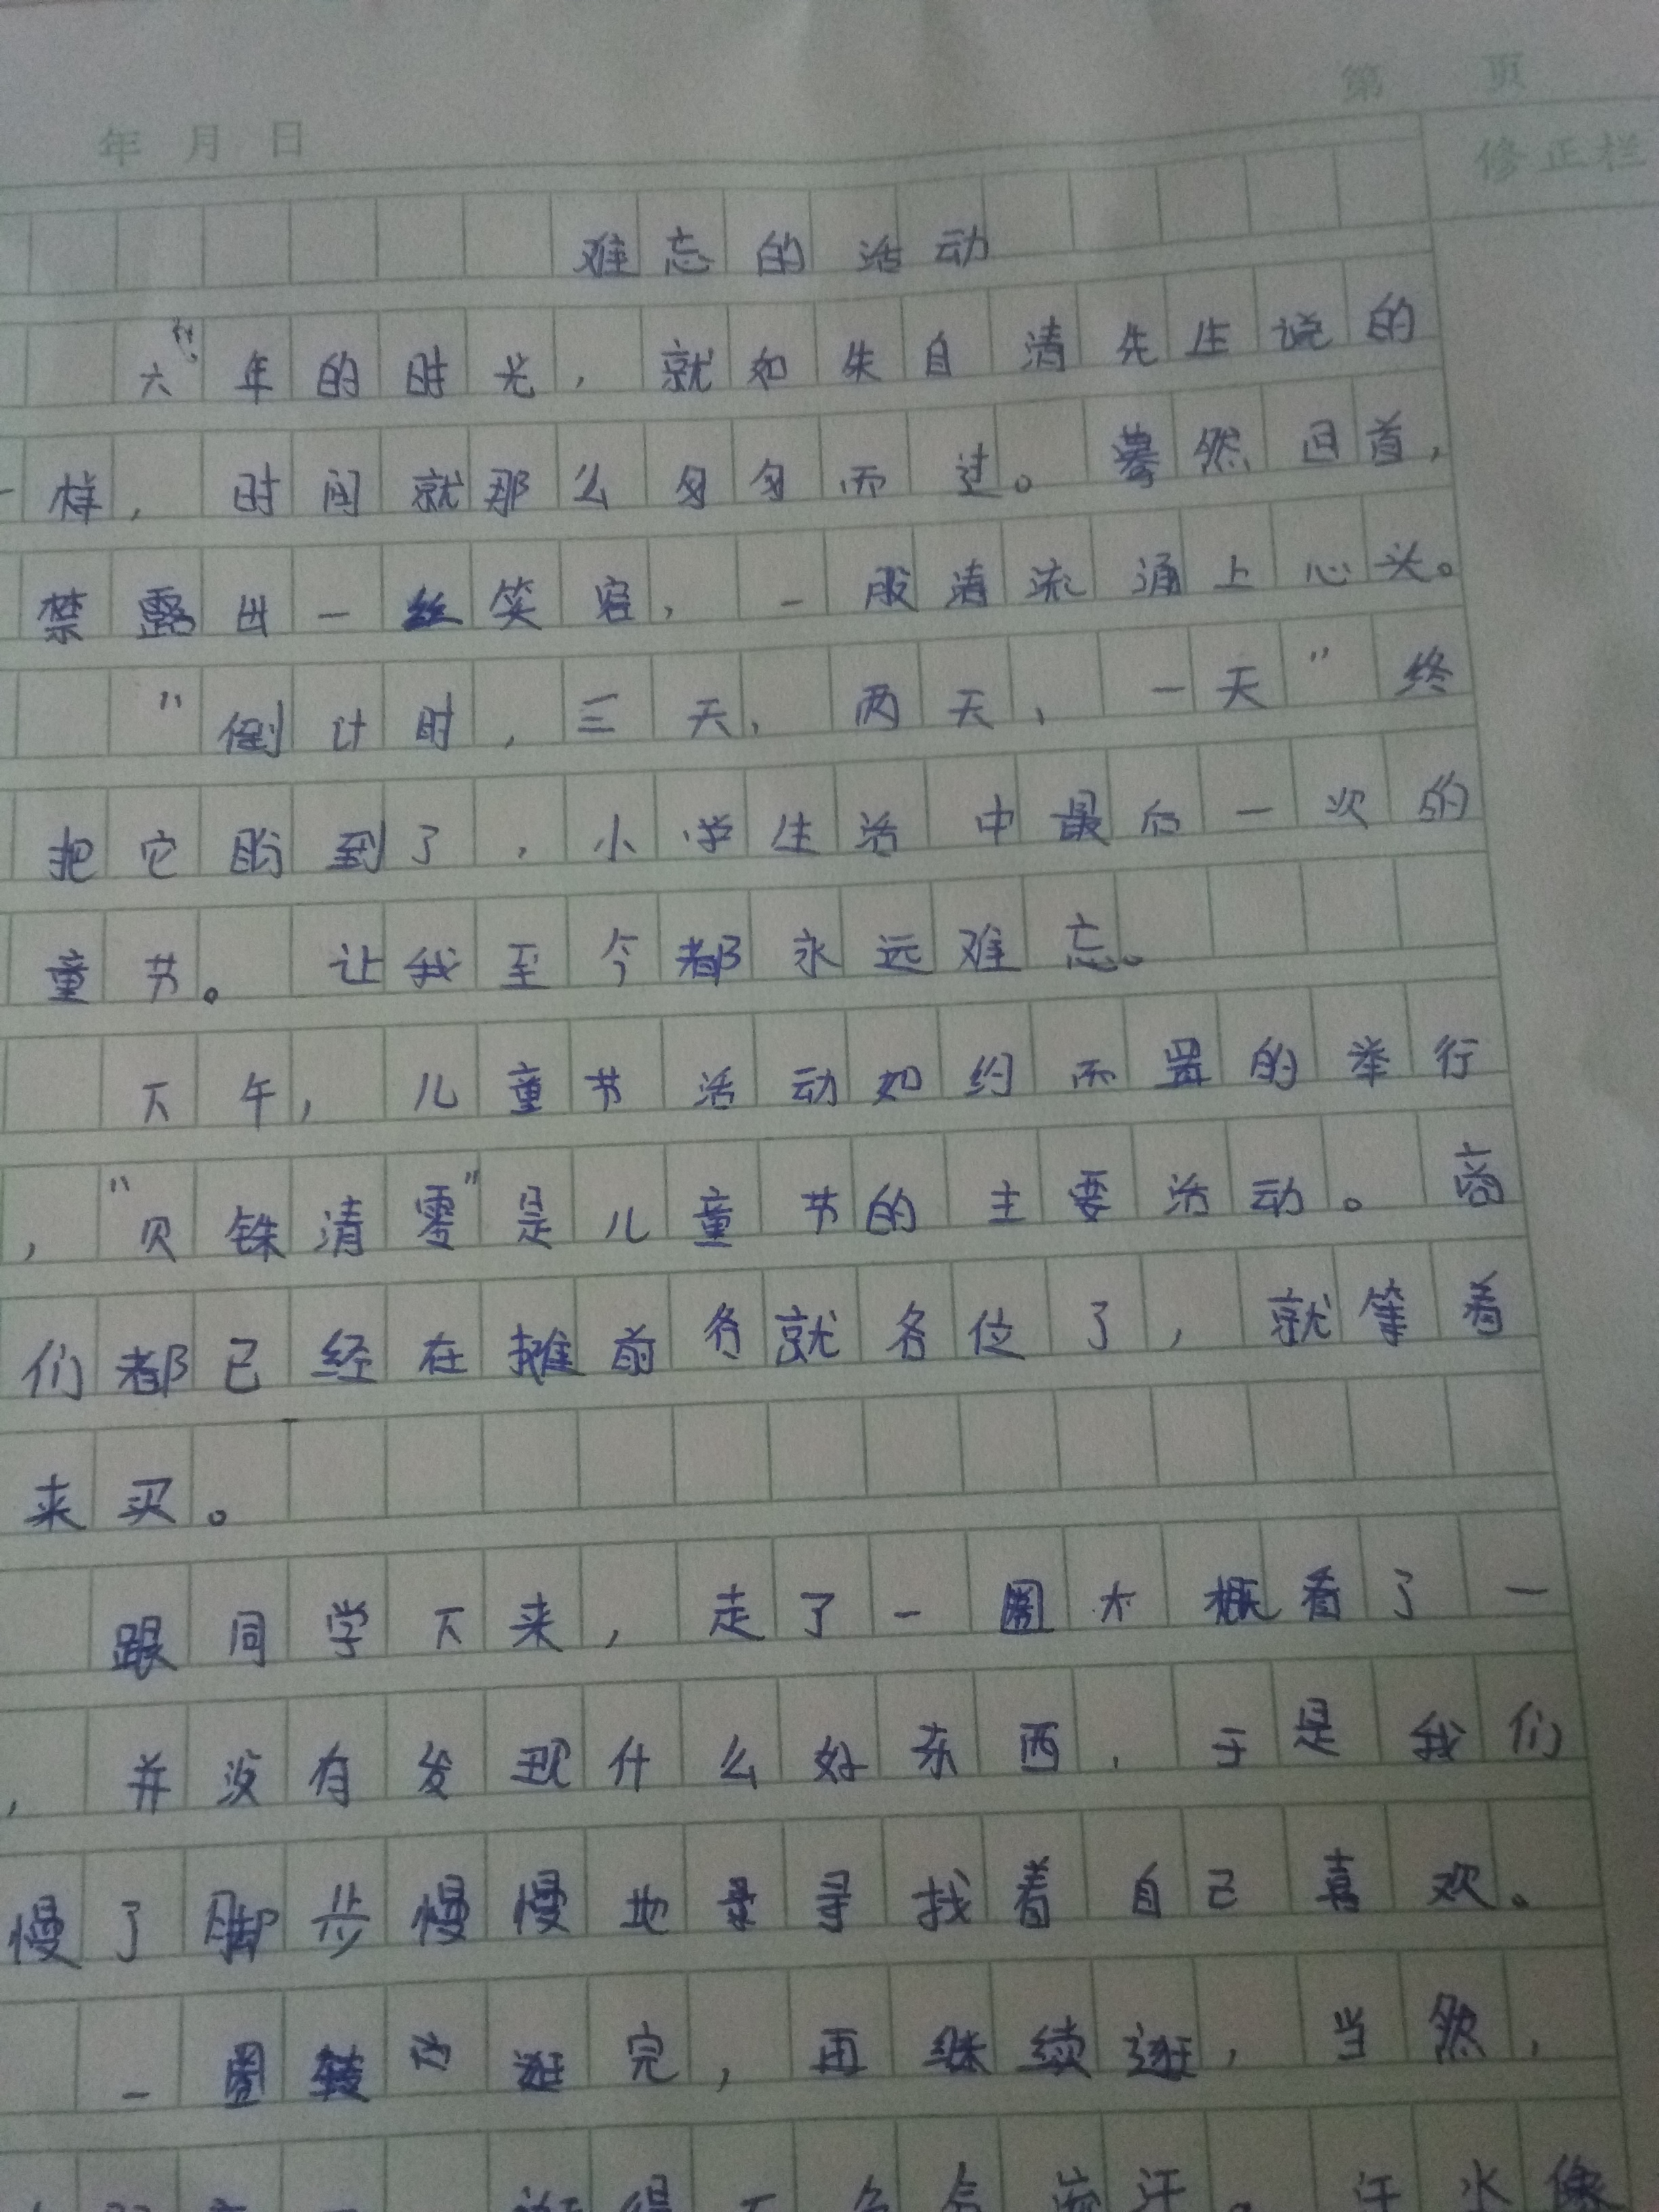 第 页
年 月 日
修正栏
难忘的活动
六年的时光，就如朱自清先生说的
一样，时间就那么匆匆而过。蓦然回首，
禁露出一丝笑容，一股清流涌上心头。
“倒计时，三天，两天，一天”终
把它盼到了，小学生活中最后一次的
童节。让我至今都永远难忘。
下午，儿童节活动如约而置的举行
，“贝铢清零”是儿童节的主要活动。商
们都已经在摊前各就各位了，就等着
来买。
跟同学下来，走了一圈大概看了一
，并没有发现什么好东西，于是我们
慢了脚步慢慢地寻找着自己喜欢。
一圈转逛完，再继续逛，当然，
逛得汗。汗水像